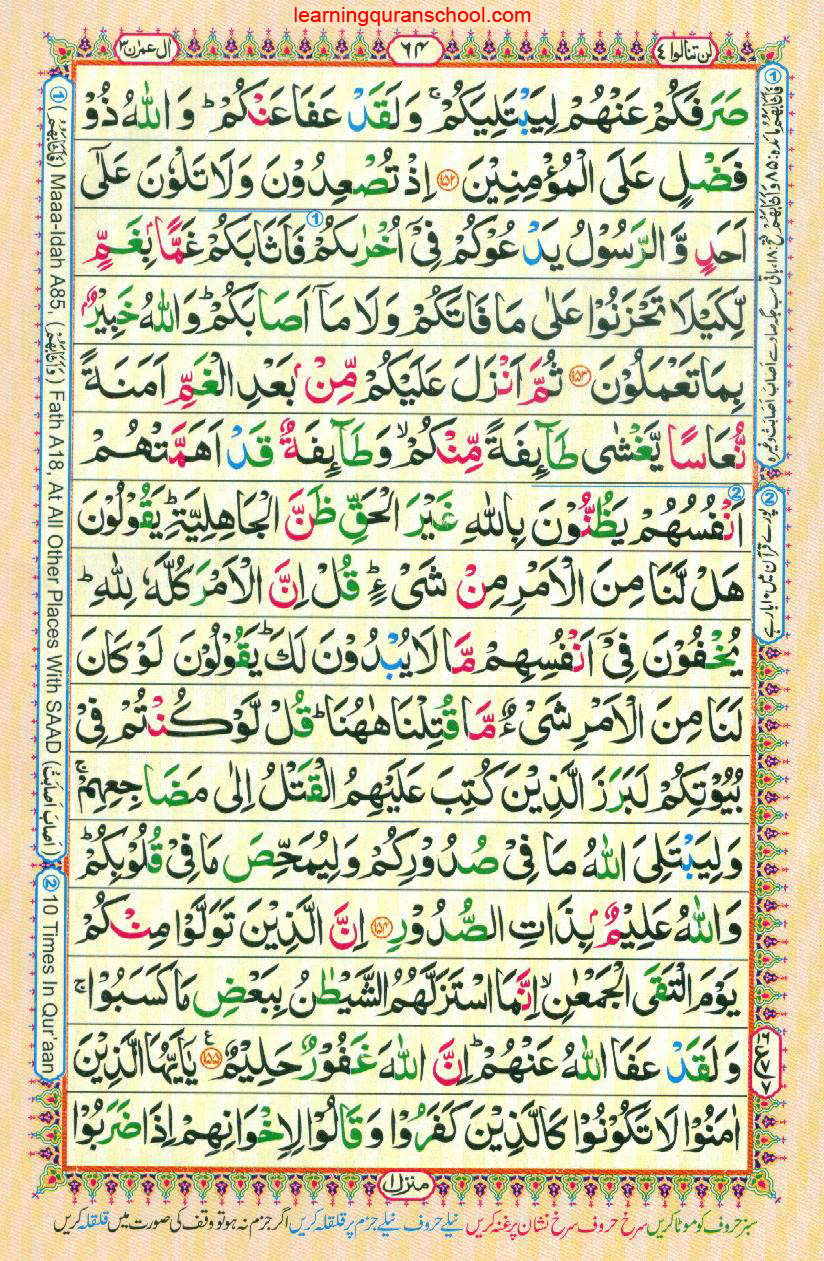 learningquranschool.com
لن تنالوا ٤
٦٤
ال عمرٰن ٣
صَرَفَكُمْ عَنْهُمْ لِيَبْتَلِيَكُمْ ۚ وَلَقَدْ عَفَا عَنْكُمْ ؕ وَاللّٰهُ ذُوْ
فَضْلٍ عَلَى الْمُؤْمِنِيْنَ ﴿۱۵۲﴾ اِذْ تُصْعِدُوْنَ وَلَا تَلْوٗنَ عَلٰٓى
اَحَدٍ وَّالرَّسُوْلُ يَدْعُوْكُمْ فِيْۤ اُخْرٰىكُمْ فَاَثَابَكُمْ غَمًّاۢ بِغَمٍّ
لِّكَيْلَا تَحْزَنُوْا عَلٰى مَا فَاتَكُمْ وَلَا مَاۤ اَصَابَكُمْ ؕ وَاللّٰهُ خَبِيْرٌۢ
بِمَا تَعْمَلُوْنَ ﴿۱۵۳﴾ ثُمَّ اَنْزَلَ عَلَيْكُمْ مِّنْۢ بَعْدِ الْغَمِّ اَمَنَةً
نُّعَاسًا يَّغْشٰى طَآئِفَةً مِّنْكُمْ ۙ وَطَآئِفَةٌ قَدْ اَهَمَّتْهُمْ
اَنْفُسُهُمْ يَظُنُّوْنَ بِاللّٰهِ غَيْرَ الْحَقِّ ظَنَّ الْجَاهِلِيَّةِ ؕ يَقُوْلُوْنَ
هَلْ لَّنَا مِنَ الْاَمْرِ مِنْ شَيْءٍ ؕ قُلْ اِنَّ الْاَمْرَ كُلَّهٗ لِلّٰهِ ؕ
يُخْفُوْنَ فِيْۤ اَنْفُسِهِمْ مَّا لَا يُبْدُوْنَ لَكَ ؕ يَقُوْلُوْنَ لَوْ كَانَ
لَنَا مِنَ الْاَمْرِ شَيْءٌ مَّا قُتِلْنَا هٰهُنَا ؕ قُلْ لَّوْ كُنْتُمْ فِيْ
بُيُوْتِكُمْ لَبَرَزَ الَّذِيْنَ كُتِبَ عَلَيْهِمُ الْقَتْلُ اِلٰى مَضَاجِعِهِمْ ۚ
وَلِيَبْتَلِيَ اللّٰهُ مَا فِيْ صُدُوْرِكُمْ وَلِيُمَحِّصَ مَا فِيْ قُلُوْبِكُمْ ؕ
وَاللّٰهُ عَلِيْمٌۢ بِذَاتِ الصُّدُوْرِ ﴿۱۵۴﴾ اِنَّ الَّذِيْنَ تَوَلَّوْا مِنْكُمْ
يَوْمَ الْتَقَى الْجَمْعٰنِ ۙ اِنَّمَا اسْتَزَلَّهُمُ الشَّيْطٰنُ بِبَعْضِ مَا كَسَبُوْا ۚ
وَلَقَدْ عَفَا اللّٰهُ عَنْهُمْ ؕ اِنَّ اللّٰهَ غَفُوْرٌ حَلِيْمٌ ﴿۱۵۵﴾ يٰۤاَيُّهَا الَّذِيْنَ
اٰمَنُوْا لَا تَكُوْنُوْا كَالَّذِيْنَ كَفَرُوْا وَقَالُوْا لِاِخْوَانِهِمْ اِذَا ضَرَبُوْا
① (فَاَثَابَهُمُ) Maaa-Idah A85, (وَاَثَابَهُمْ) Fath A18, At All Other Places With SAAD (اَصَابَ اَصَابَتْ)
② 10 Times In Qur'aan
② پورے قرآن میں ۱۰ بار ہے
منزل ۱
سبز حروف کو موٹا کریں سرخ حروف سرخ نشان پر غنہ کریں نیلے حروف نیلے جزم پر قلقلہ کریں اگر جزم نہ ہو تو وقف کی صورت میں قلقلہ کریں